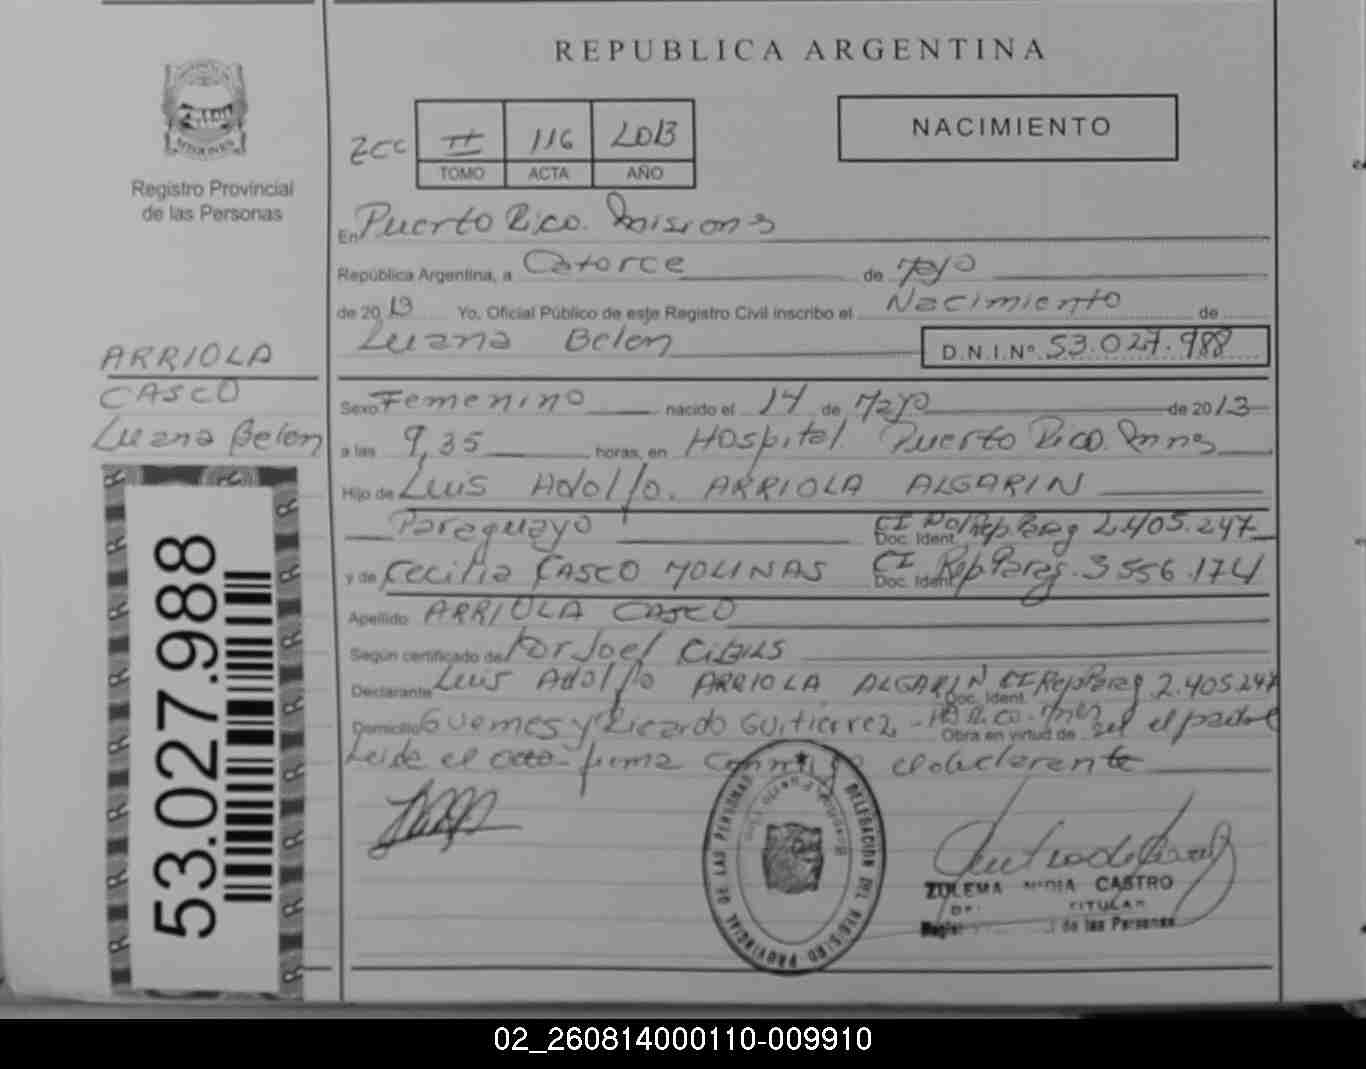 REPUBLICA ARGENTINA
Registro Provincial
de las Personas
MISIONES
ZCC II 116 2013
TOMO ACTA AÑO
NACIMIENTO
En Puerto Rico. Misiones
República Argentina, a Catorce de Mayo
de 2013 Yo, Oficial Público de este Registro Civil inscribo el Nacimiento de
Luana Belen D.N.I.Nº 53.027.988
ARRIOLA
CASCO
Luana Belen
Sexo Femenino nacido el 14 de Mayo de 2013
a las 9,35 horas, en Hospital Puerto Rico. Mnes
Hijo de Luis Adolfo. ARRIOLA ALGARIN
Paraguayo Doc. Ident. CI Rep Parag 2.405.247
y de Cecilia CASCO MOLINAS Doc. Ident. CI Rep Parag. 3556.174
Apellido ARRIOLA CASCO
Según certificado de Joel CIBILS
Declarante Luis Adolfo ARRIOLA ALGARIN Doc. Ident. CI Rep Parag 2.405.247
Domicilio Guemes y Ricardo Gutierrez - Pto Rico. Mnes Obra en virtud de ser el padre
Leida el acta firma conmigo el declarante
53.027.988
DELEGACION DEL REGISTRO PROVINCIAL DE LAS PERSONAS
ZULEMA CASTRO
TITULAR
de las Personas
02_260814000110-009910